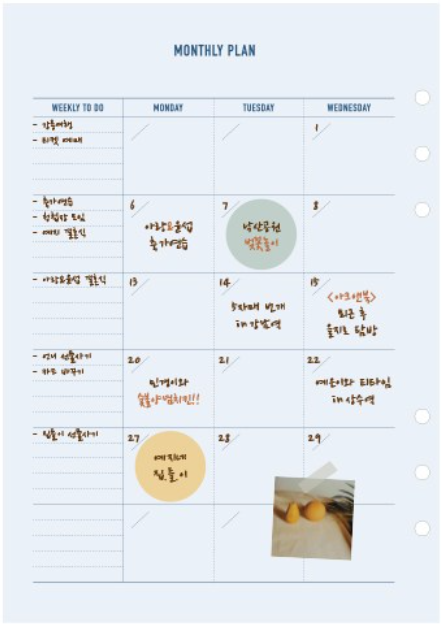 MONTHLY PLAN
WEEKLY TO DO
MONDAY
TUESDAY
WEDNESDAY
- 강릉여행
- 티켓 예매
1
- 축가연습
- 청첩장 모임
- 예지 결혼식
6
아랑요윤섭
축가연습
7
낙산공원
벚꽃놀이
8
- 아랑요윤섭 결혼식
13
14
5자매 번개
in 강남역
15
<아크앤북>
퇴근 후
을지로 탐방
- 언니 선물사기
- 카드 바꾸기
20
민경이와
숯불양념치킨!!
21
22
예은이와 티타임
in 상수역
- 집들이 선물사기
27
예지네
집들이
28
29